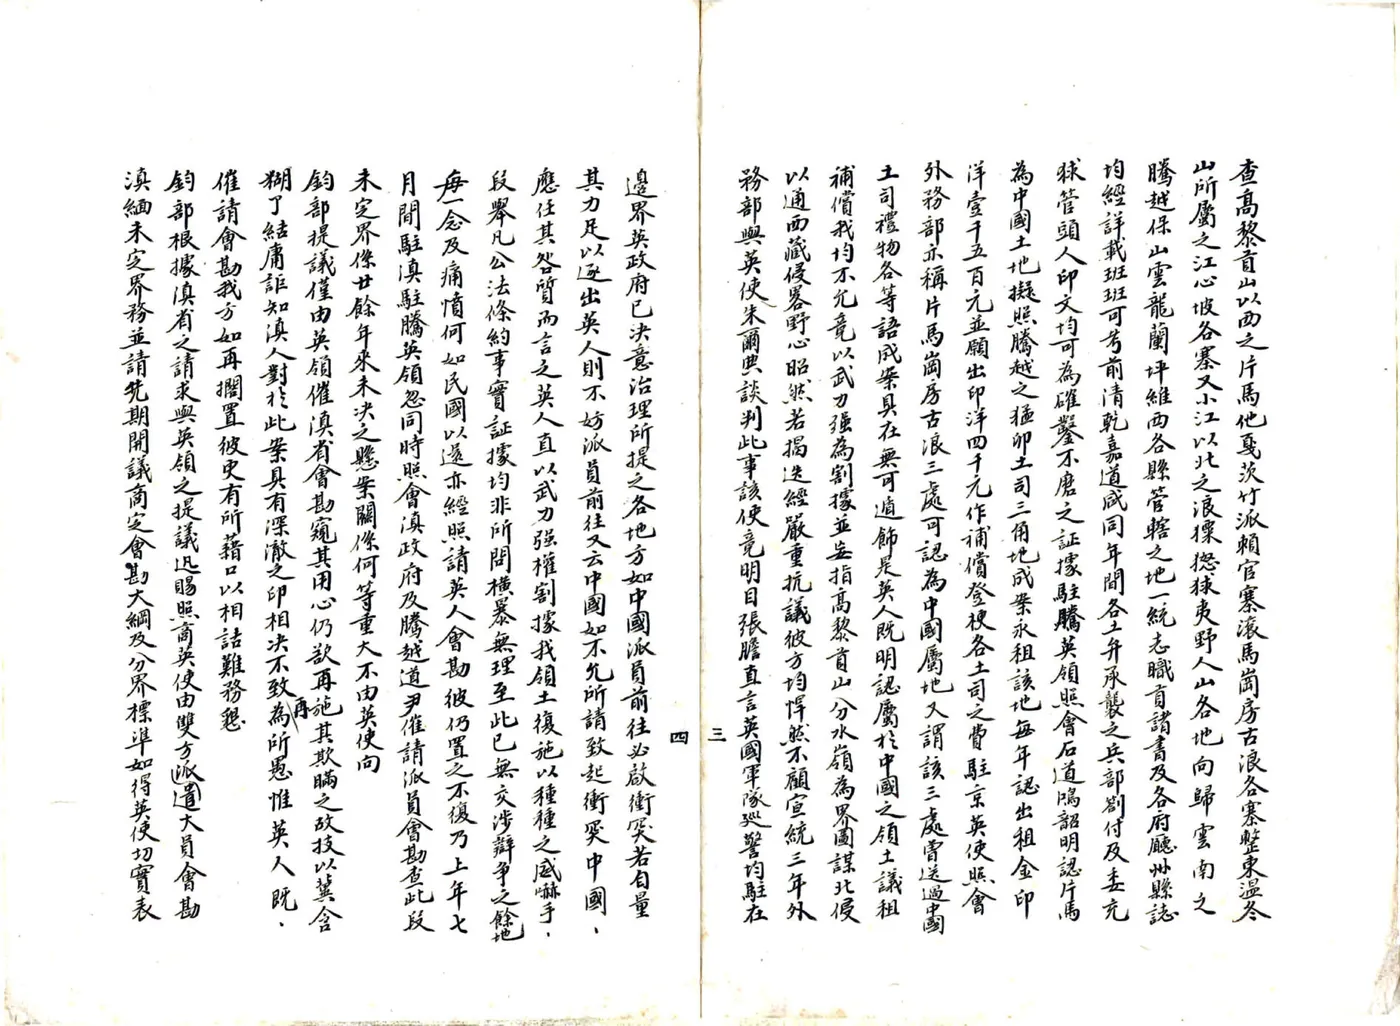 查高黎貢山以西之片馬他戛茨竹派賴官寨滾馬崗房古浪各寨整東溫冬
山所屬之江心坡各寨又小江以北之浪猓惄狄夷野人山各地向歸雲南之
騰越保山雲龍蘭坪維西各縣管轄之地一統志職貢諸書及各府廳州縣誌
均經詳載班班可考前清乾嘉道咸同年間各土弁承襲之兵部劄付及委充
狄管頭人印文均可為確鑿不磨之証據駐騰英領照會石道鴻韶明認片馬
為中國土地擬照騰越之猛卯土司三角地成案永租該地每年認出租金印
洋壹千五百元並願出印洋四千元作補償登埂各土司之費駐京英使照會
外務部亦稱片馬崗房古浪三處可認為中國屬地又謂該三處嘗送過中國
土司禮物各等語成案具在無可遁飾是英人既明認屬於中國之領土議租
補償我均不允竟以武力強為割據並妄指高黎貢山分水嶺為界圖謀北侵
以通西藏侵畧野心昭然若揭迭經嚴重抗議彼方均悍然不顧宣統三年外
務部與英使朱爾典談判此事該使竟明目張膽直言英國軍隊巡警均駐在
三
四
邊界英政府已決意治理所提之各地方如中國派員前往必啟衝突若自量
其力足以逐出英人則不妨派員前往又云中國如不允所請致起衝突中國、
應任其咎質而言之英人直以武力强權割據我領土復施以種種之威嚇手、
段舉凡公法條約事實証據均非所問橫暴無理至此已無交涉辯爭之餘地
每一念及痛憤何如民國以還亦經照請英人會勘彼仍置之不復乃上年七
月間駐滇駐騰英領忽同時照會滇政府及騰越道尹催請派員會勘查此段
未定界係廿餘年來未決之懸案關係何等重大不由英使向
鈞部提議僅由英領催滇省會勘窺其用心仍欲再施其欺瞞之故技以冀含
糊了結庸詎知滇人對於此案具有深澈之印相决不致再為所愚惟英人既、
催請會勘我方如再擱置彼更有所藉口以相詰難務懇
鈞部根據滇省之請求與英領之提議迅賜照商英使由雙方派遣大員會勘
滇緬未定界務並請先期開議商定會勘大綱及分界標準如得英使切實表